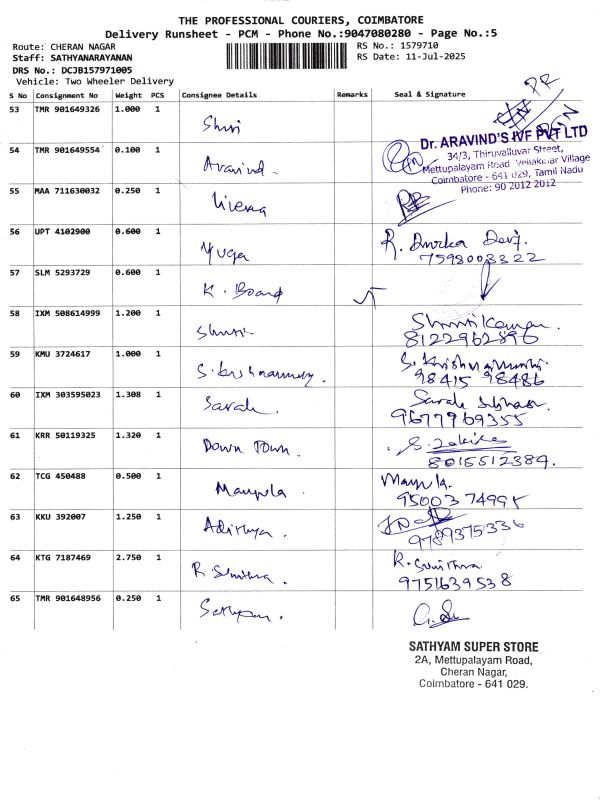 THE PROFESSIONAL COURIERS, COIMBATORE
Delivery Runsheet - PCM - Phone No.:9047080280 - Page No.:5
Route: CHERAN NAGAR
RS No.: 1579710
Staff: SATHYANARAYANAN
RS Date: 11-Jul-2025
DRS No.: DCJB157971005
Vehicle: Two Wheeler Delivery
S No Consignment No Weight PCS Consignee Details Remarks Seal & Signature
53 TMR 901649326 1.000 1 Shri
54 TMR 901649554 0.100 1 Aravind.
Dr. ARAVIND'S IVF PVT LTD
34/3, Thiruvalluvar Street,
Mettupalayam Road, Vellakinar Village
Coimbatore - 641 029, Tamil Nadu
Phone: 90 2012 2012
55 MAA 711630032 0.250 1
56 UPT 4102900 0.600 1 Yuga R. Durka Devi.
7598003322
57 SLM 5293729 0.600 1 K. Board
58 IXM 508614999 1.200 1 Shruti Shruti Kannan.
8122962896
59 KMU 3724617 1.000 1 S. Krishnamurthy. S. Krishnamurthi.
98415 98486
60 IXM 303595023 1.308 1 Sarah. Sarah
9677769355
61 KRR 50119325 1.320 1 Down Town. S. Zakira
8015512384.
62 TCG 450488 0.500 1 Manjula. Manjula.
95003 74995
63 KKU 392007 1.250 1 Adithya.
9789375336
64 KTG 7187469 2.750 1 R. Sunithra. R. Sunithra
9751639538
65 TMR 901648956 0.250 1 Sathyam.
SATHYAM SUPER STORE
2A, Mettupalayam Road,
Cheran Nagar,
Coimbatore - 641 029.